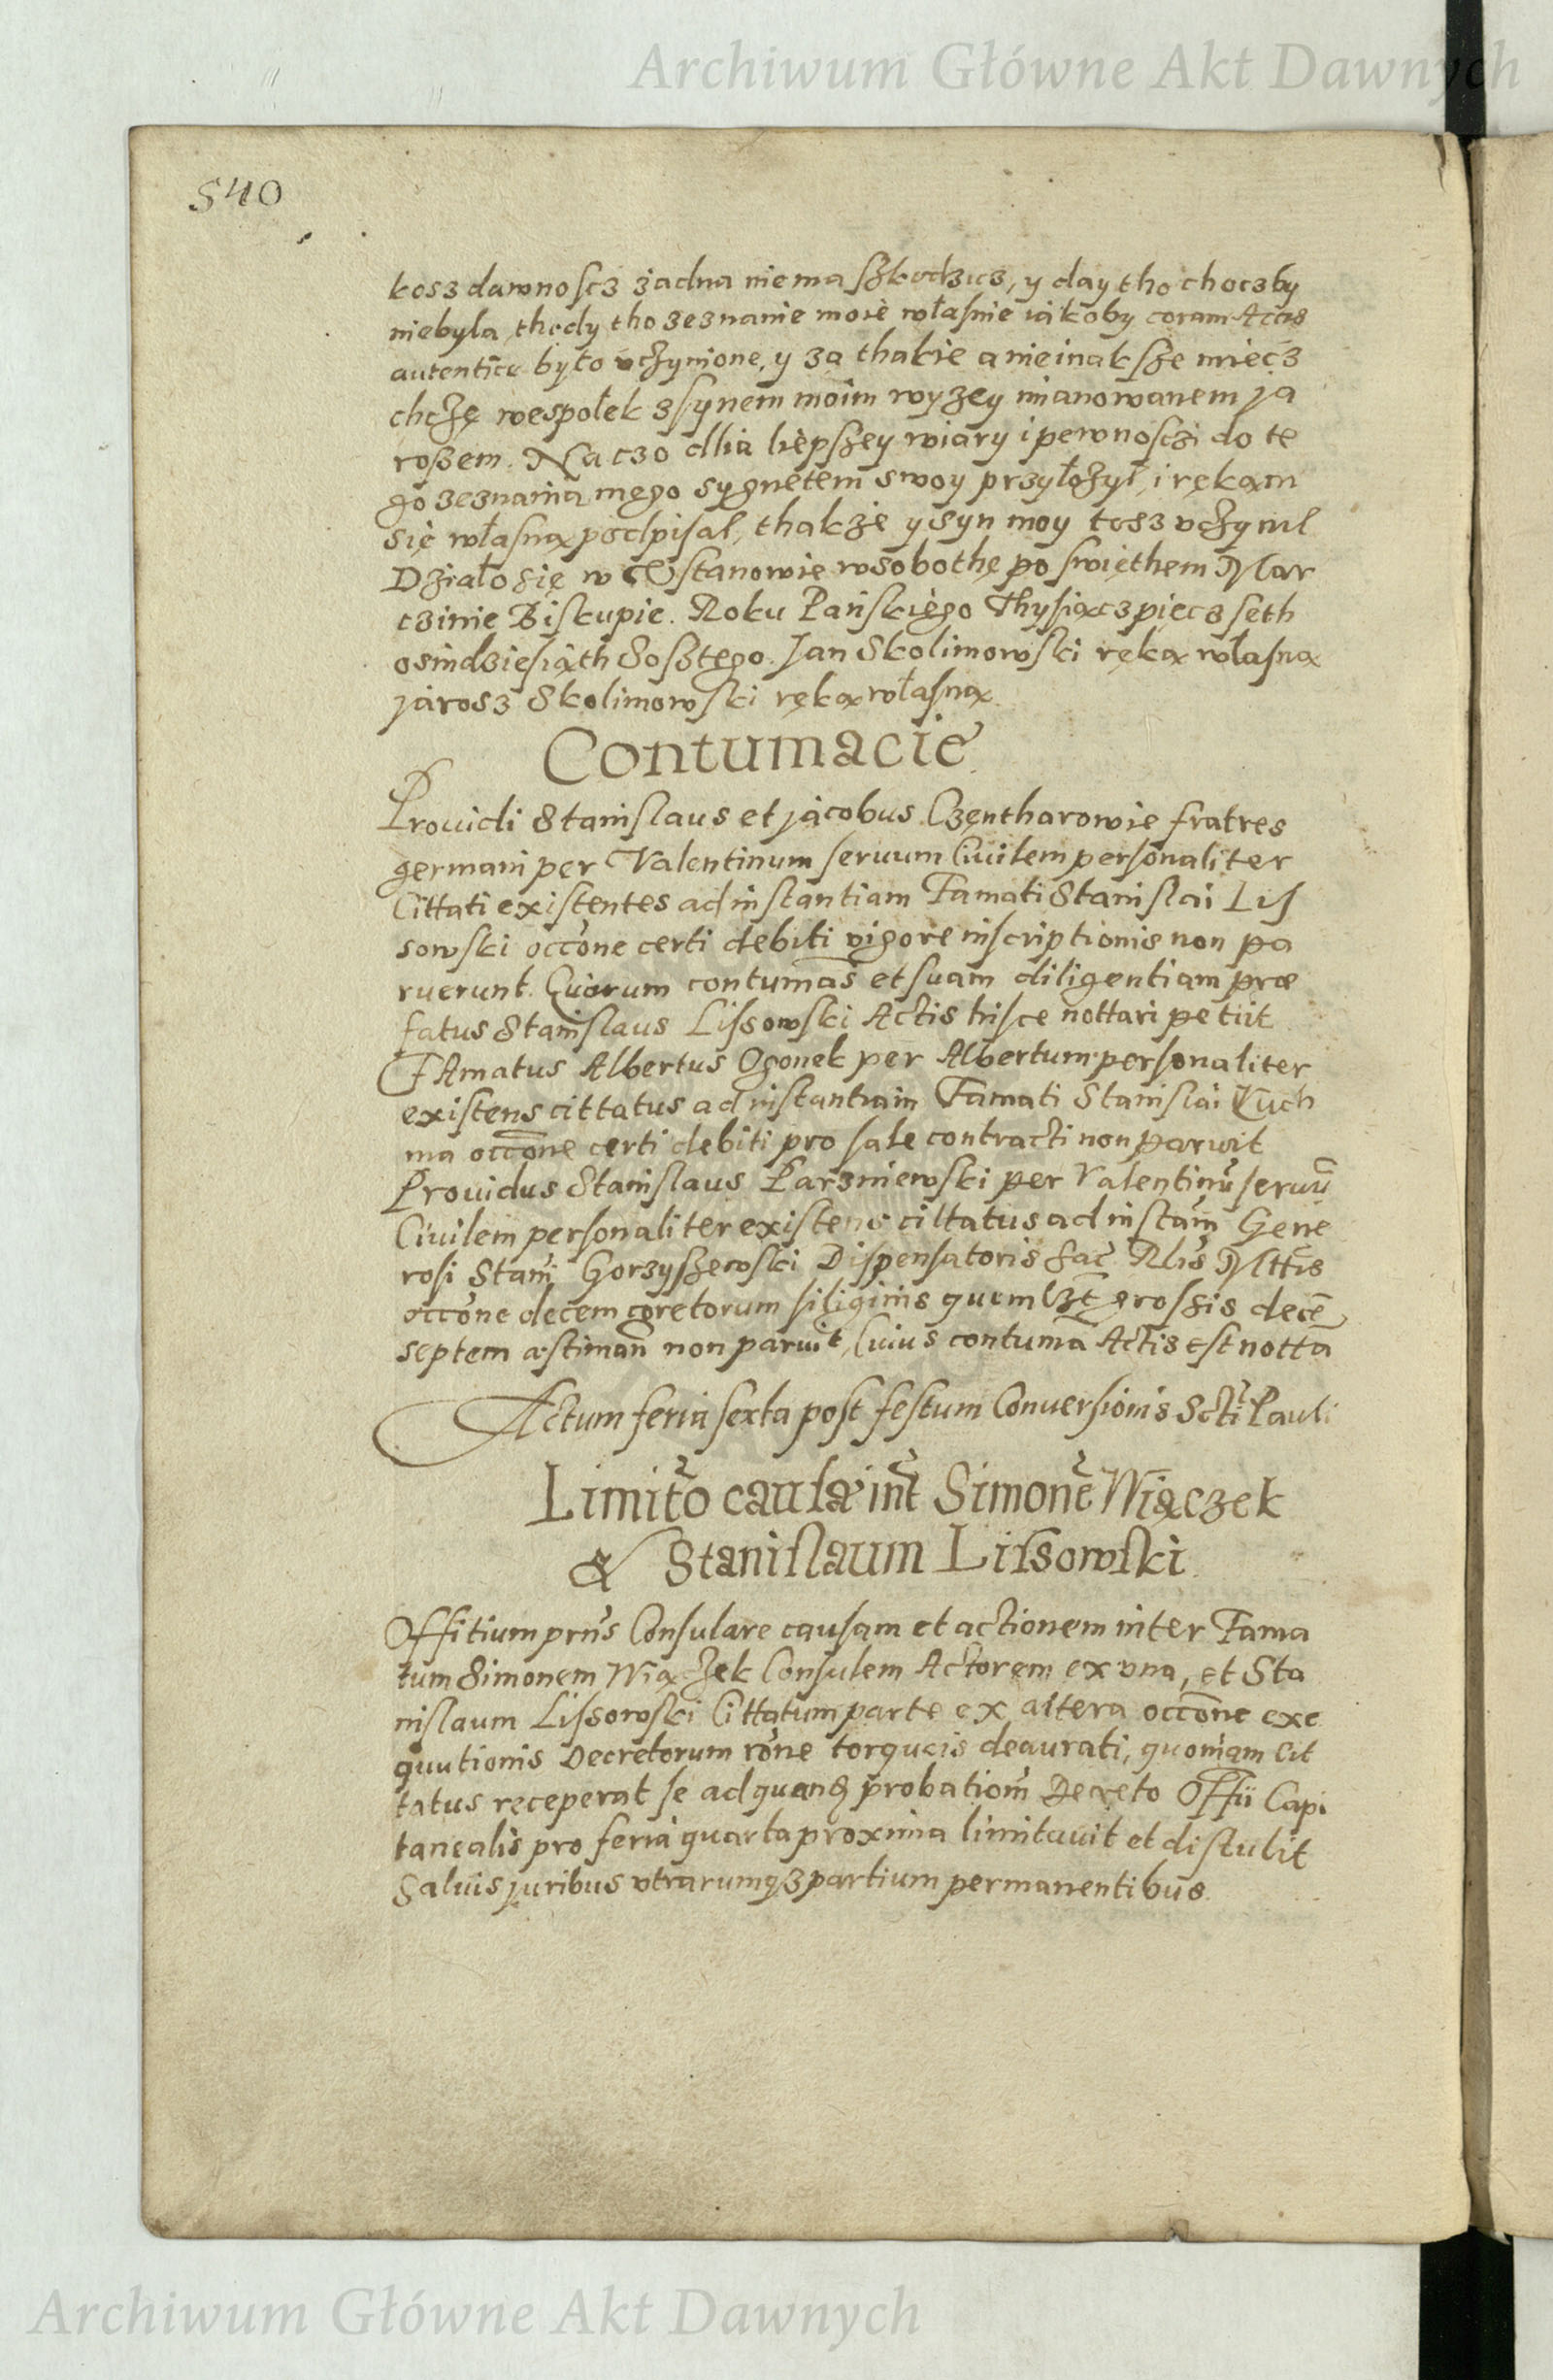 Archiwum Główne Akt Dawnych
540
kosz dawnoscz żadna niema szkodzicz, y day tho choczby
niebyla, thedy tho zeznanie moie własnie iakoby coram Actis
autentice było vczynione, y za thakie a nieinaksze miecz
chczę wespołek z synem moim wyzey mianowanem Ja
roszem. Na czo dllia liepszey wiary i pewnosczi do te
go zeznania mego sygnetem swoy przyłożył, i rękąm
się własną podpisal, thakze y syn moy tosz vczynil
Działo się w Ustanowie wsobothę po swięthem Mar
czinie Biskupie. Roku Pańskiego Thysiącz pięcz seth
osindziesiąth Szosztego. Jan Skolimowski ręką własną
Jarosz Skolimowski ręką własną.
Contumacie
Prouidi Stanislaus et Jacobus Czentharowie fratres
germani per Valentinum seruum Ciuilem personaliter
Cittati existentes ad instantiam Famati Stanislai Lis
sowski occone certi debiti vigore inscriptionis non pa
ruerunt. Quorum contumas et suam diligentiam præ
fatus Stanislaus Lissowski Actis hisce nottari petiit
FAmatus Albertus Ogonek per Albertum personaliter
existens cittatus ad instantiam Famati Stanislai Kuch
ma occone certi debiti pro sale contracti non paruit
Prouidus Stanislaus Parzniewski per Valentinū seruū
Ciuilem personaliter existens cittatus ad instam Gene
rosi Stani Gorzyszewski Dispensatoris Sac Rlis Mttis
occone decem coretorum siliginis quem lzt grossis decē
septem æstiman non paruit, Cuius contuma Actis est notta
Actum feria sexta post festum Conuersionis Scti Pauli
Limito causæ int Simonē Wiączek
& Stanislaum Lissowski.
Offitium prns Consulare causam et actionem inter Fama
tum Simonem Wiączek Consulem Actorem ex vna, et Sta
nislaum Lissowski Cittatum parte ex altera occone exe
quutionis Decretorum rone torquis deaurati, quoniam Cit
tatus receperat se ad quand probationē Decreto Offii Capi
tanealis pro feria quarta proxima limitauit et distulit
Saluis juribus vtrarumqz partium permanentibus.
Archiwum Główne Akt Dawnych